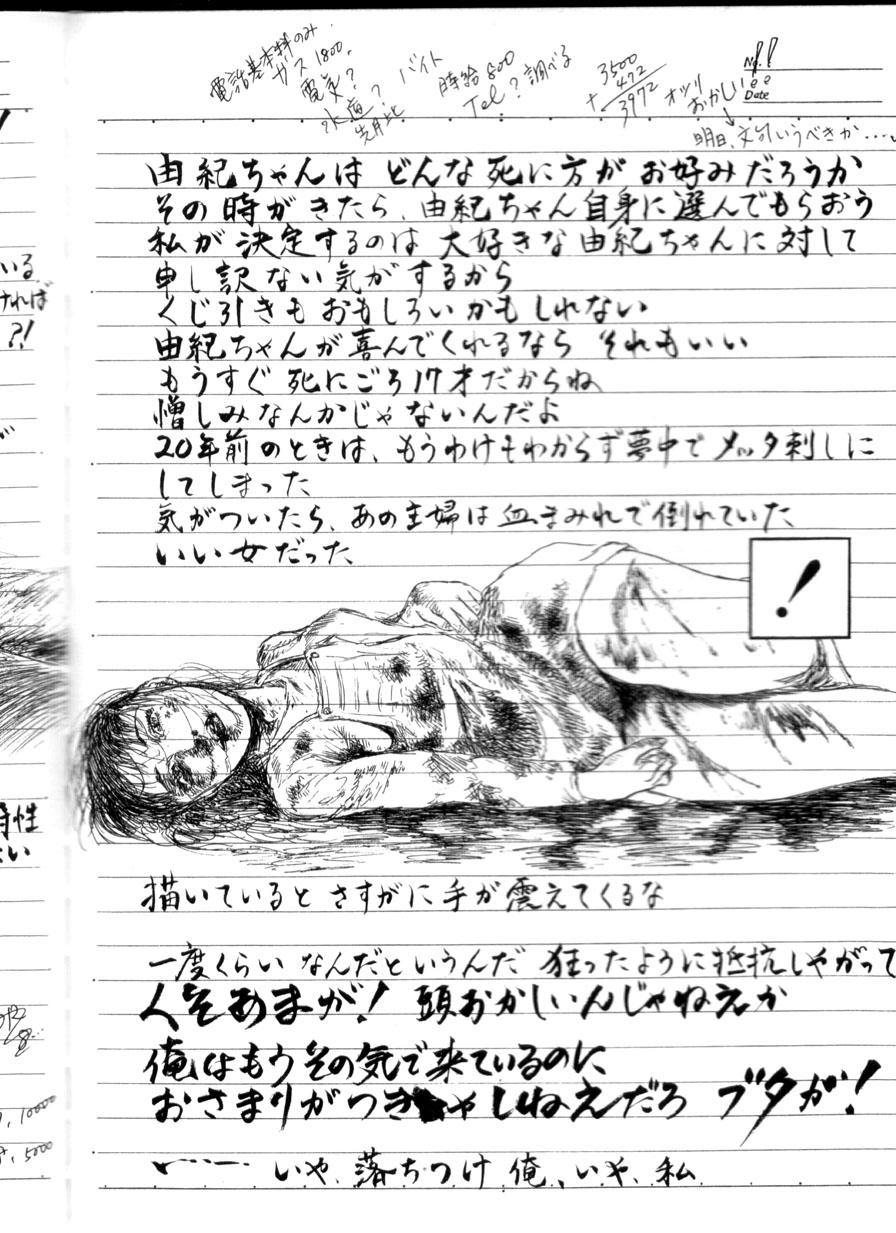 電話基本料のみ
ガス1800.
電気?
水道?
先月比
バイト
時給 800
Tel? 調べる
3500
472
+
3972
オツリ
おかしい
明日、文句いうべきか....
No.
Date
!!
由紀ちゃんは どんな死に方が お好みだろうか
その時がきたら、由紀ちゃん自身に選んでもらおう
私が決定するのは 大好きな由紀ちゃんに対して
申し訳ない気がするから
くじ引きもおもしろいかもしれない
由紀ちゃんが喜んでくれるなら それもいい
もうすぐ 死にごろ17才だからね
憎しみなんかじゃないんだよ
20年前のときは、もうわけもわからず夢中でメッタ刺しに
してしまった
気がついたら、あの主婦は血まみれで倒れていた
いい女だった
!
描いていると さすがに手が震えてくるな
一度くらい なんだというんだ 狂ったように抵抗しやがって
くそあまが! 頭おかしいんじゃねえか
俺はもうその気で来ているのに
おさまりがつきゃしねえだろ ブタが!
いや、落ちつけ 俺、いや、私
いる
ければ
?!
特性
たい
10000
5000